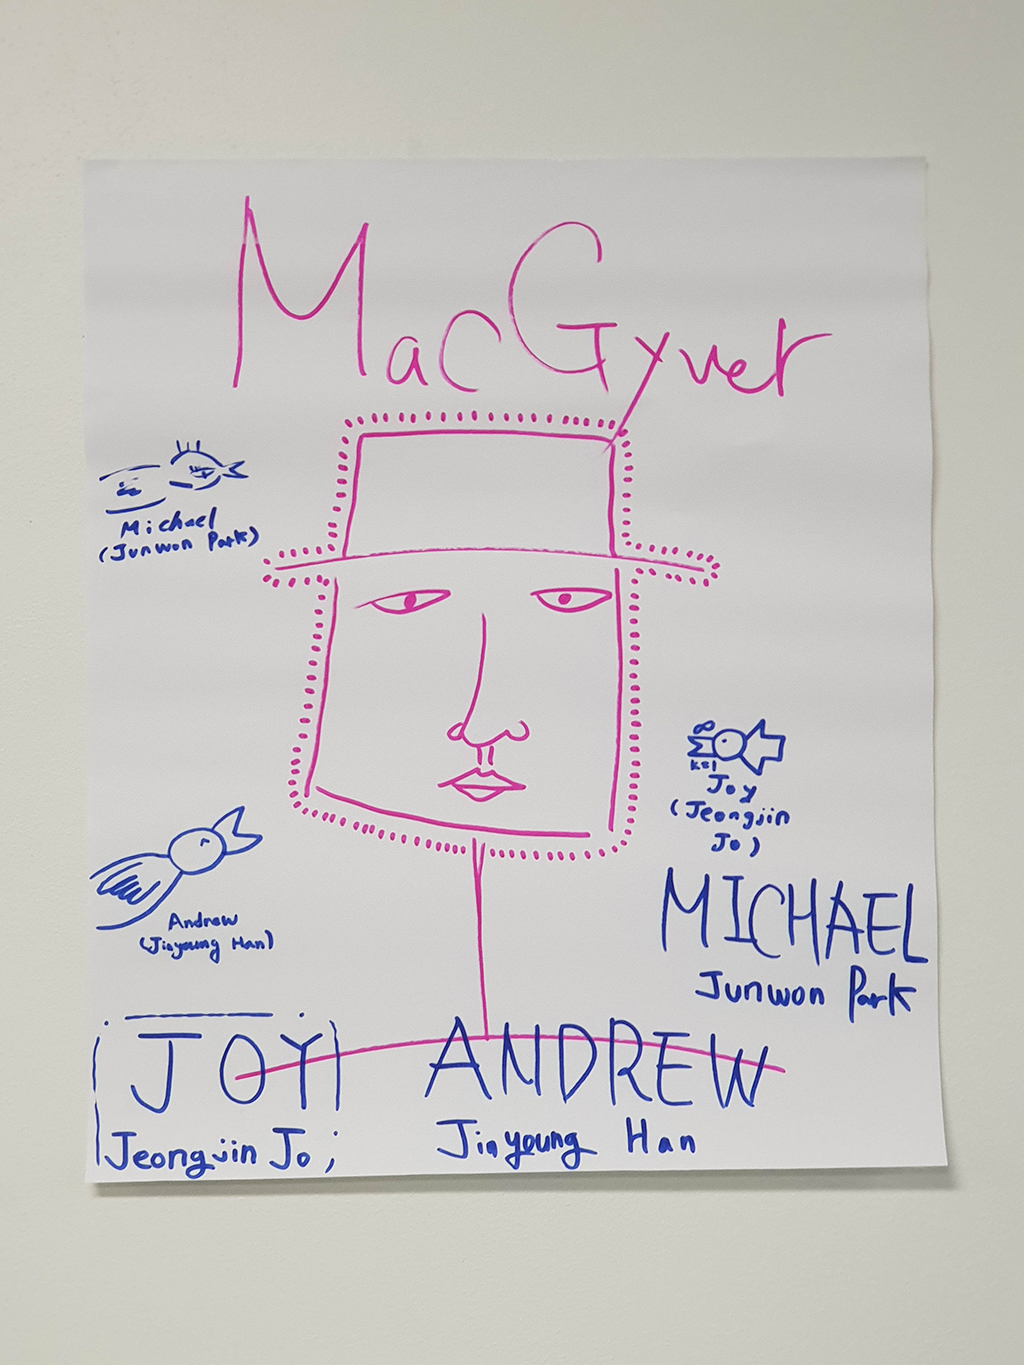 MacGyver
Michael
(Junwon Park)
∞
k=1
Joy
(Jeongjin
Jo)
Andrew
(Jinyoung Han)
MICHAEL
Junwon Park
JOY
Jeongjin Jo;
ANDREW
Jinyoung Han